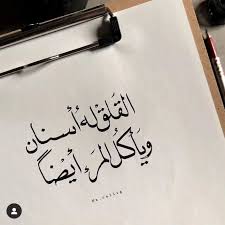 القلقْ لهُ أسنان
ويأكلُ المرء أيْضاً